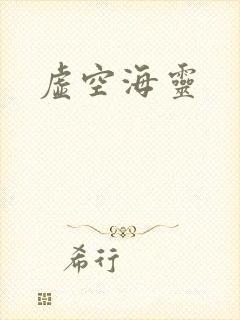 虛空海靈
希行